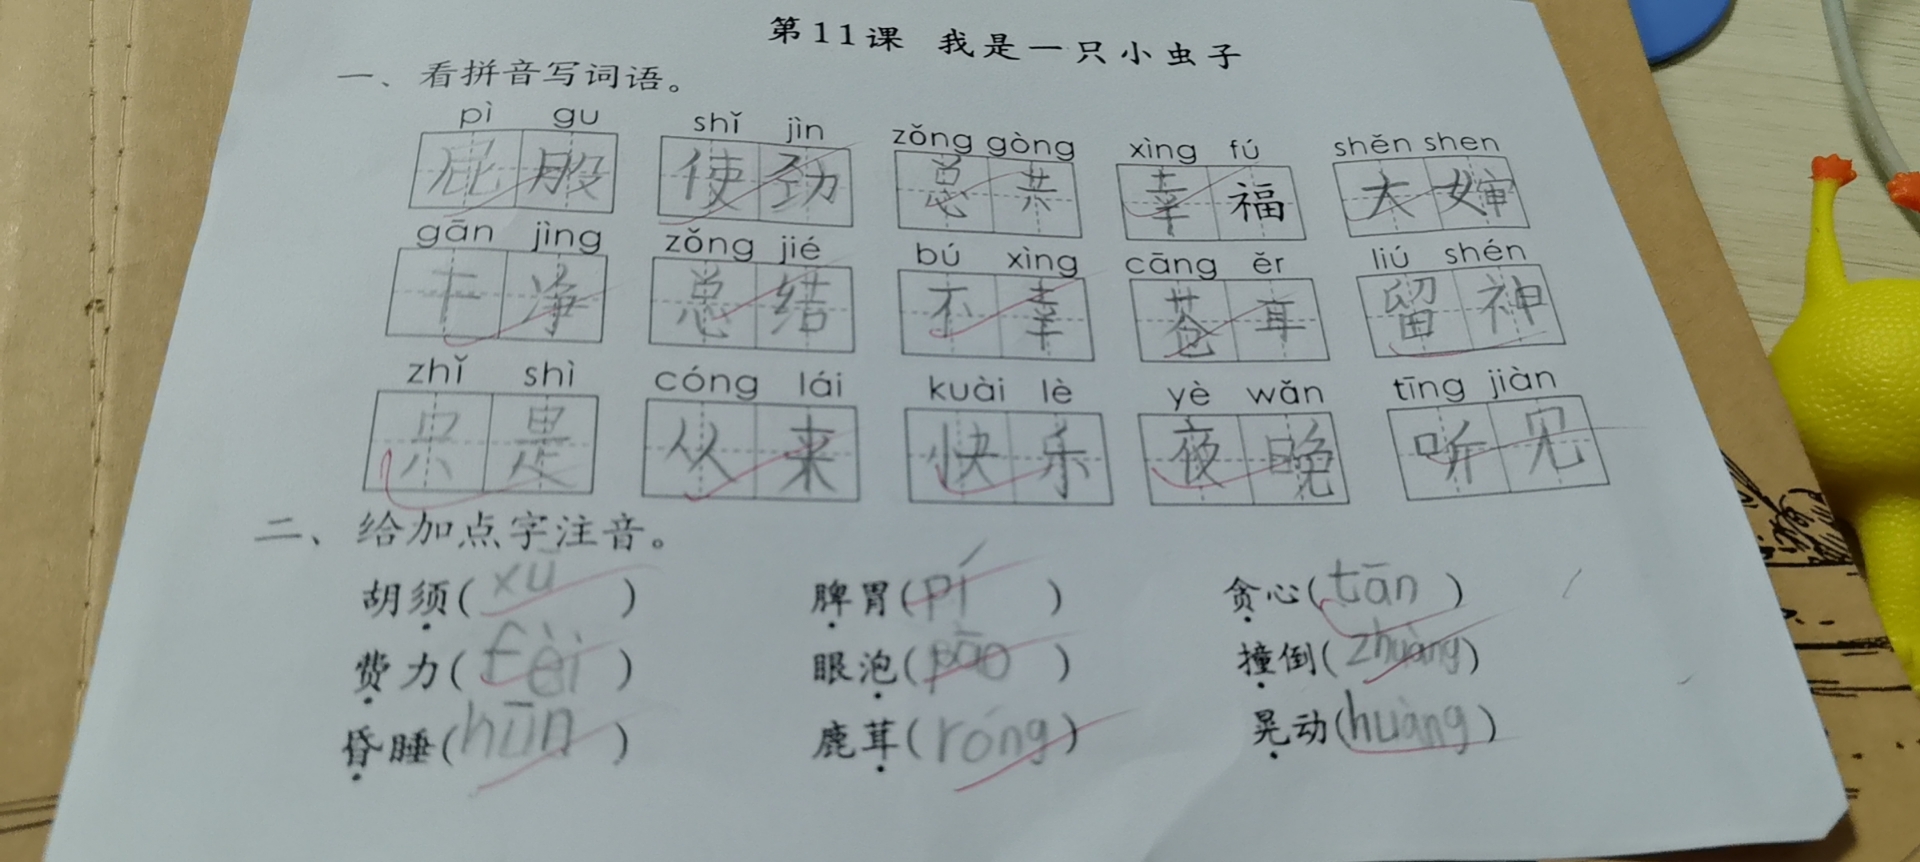 第11课 我是一只小虫子
一、看拼音写词语。
pì gu shǐ jìn zǒng gòng xìng fú shěn shen
屁股 使劲 总共 幸福 大婶
gān jìng zǒng jié bú xìng cāng ěr liú shén
干净 总结 不幸 苍耳 留神
zhǐ shì cóng lái kuài lè yè wǎn tīng jiàn
只是 从来 快乐 夜晚 听见
二、给加点字注音。
胡须(xū) 脾胃(pí) 贪心(tān)
费力(fèi) 眼泡(pāo) 撞倒(zhuàng)
昏睡(hūn) 鹿茸(róng) 晃动(huàng)